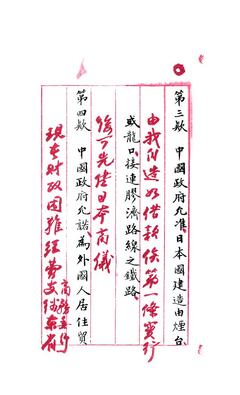 第三欵　中國政府允准日本國建造由煙台
由我自造如借款俟第一條實行
或龍口接連膠濟路線之鐵路
後可先日本商議
第四欵　中國政府允諾為外國人居住貿
現在財政困難經費支絀